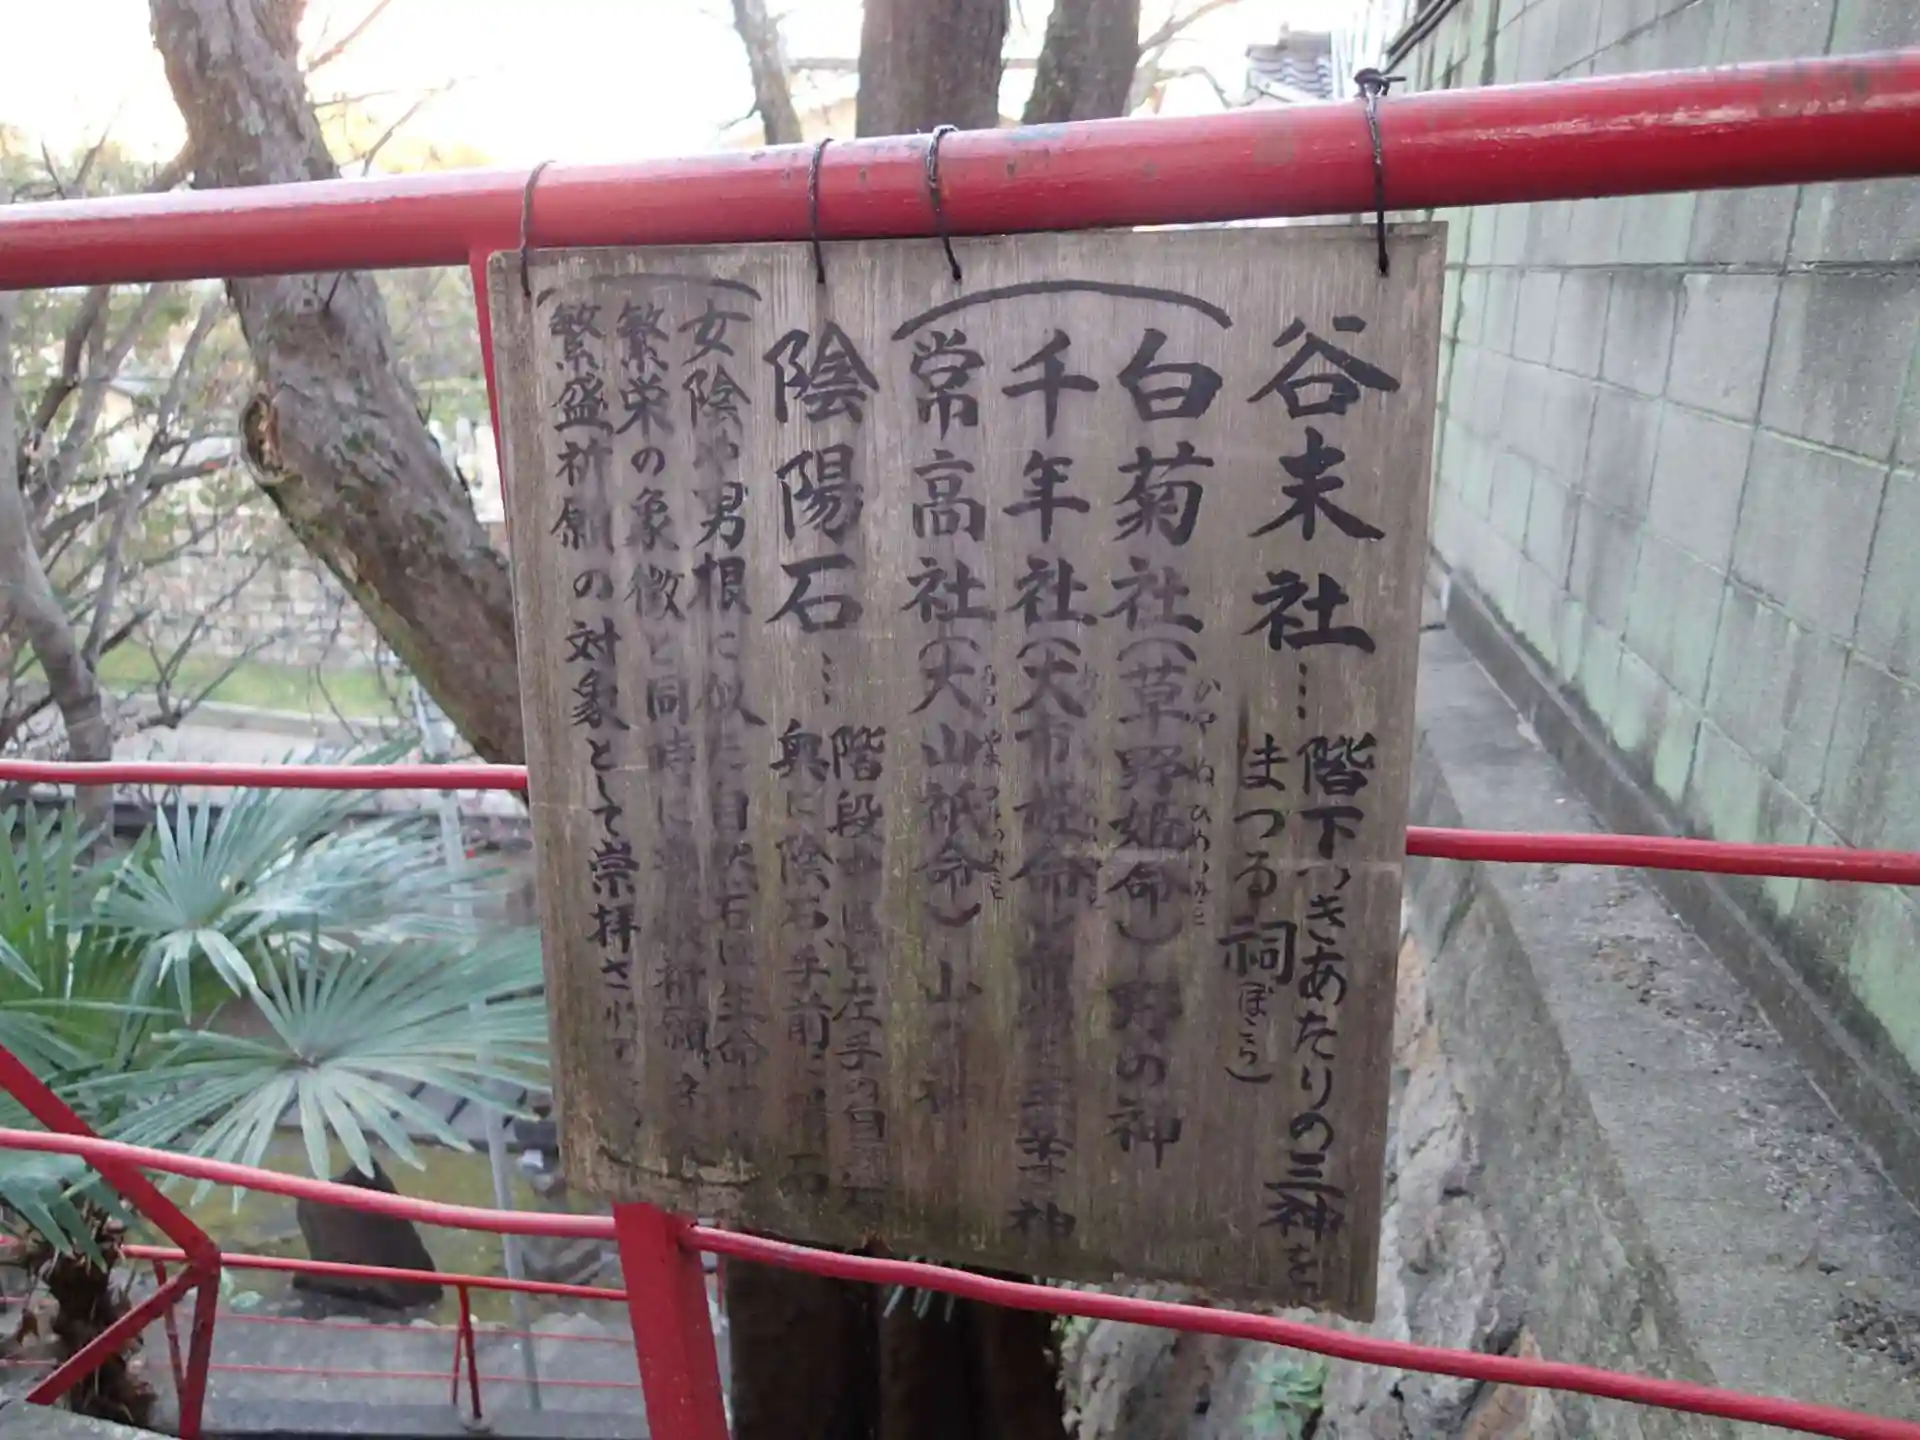 谷末社…階下つきあたりの三神を
まつる祠(ほこら)
白菊社(草野姫命)野の神
かやぬひめのみこと
千年社(大市姫命)市場の主宰神
常高社(大山祇命)山の神
おおやまつみのみこと
陰陽石…階段中ほど左手の自然石
奥に陰石、手前に陽石
女陰や男根に似た自然石は生命
繁栄の象徴と同時に 祈願
繁盛祈願の対象として崇拝されて